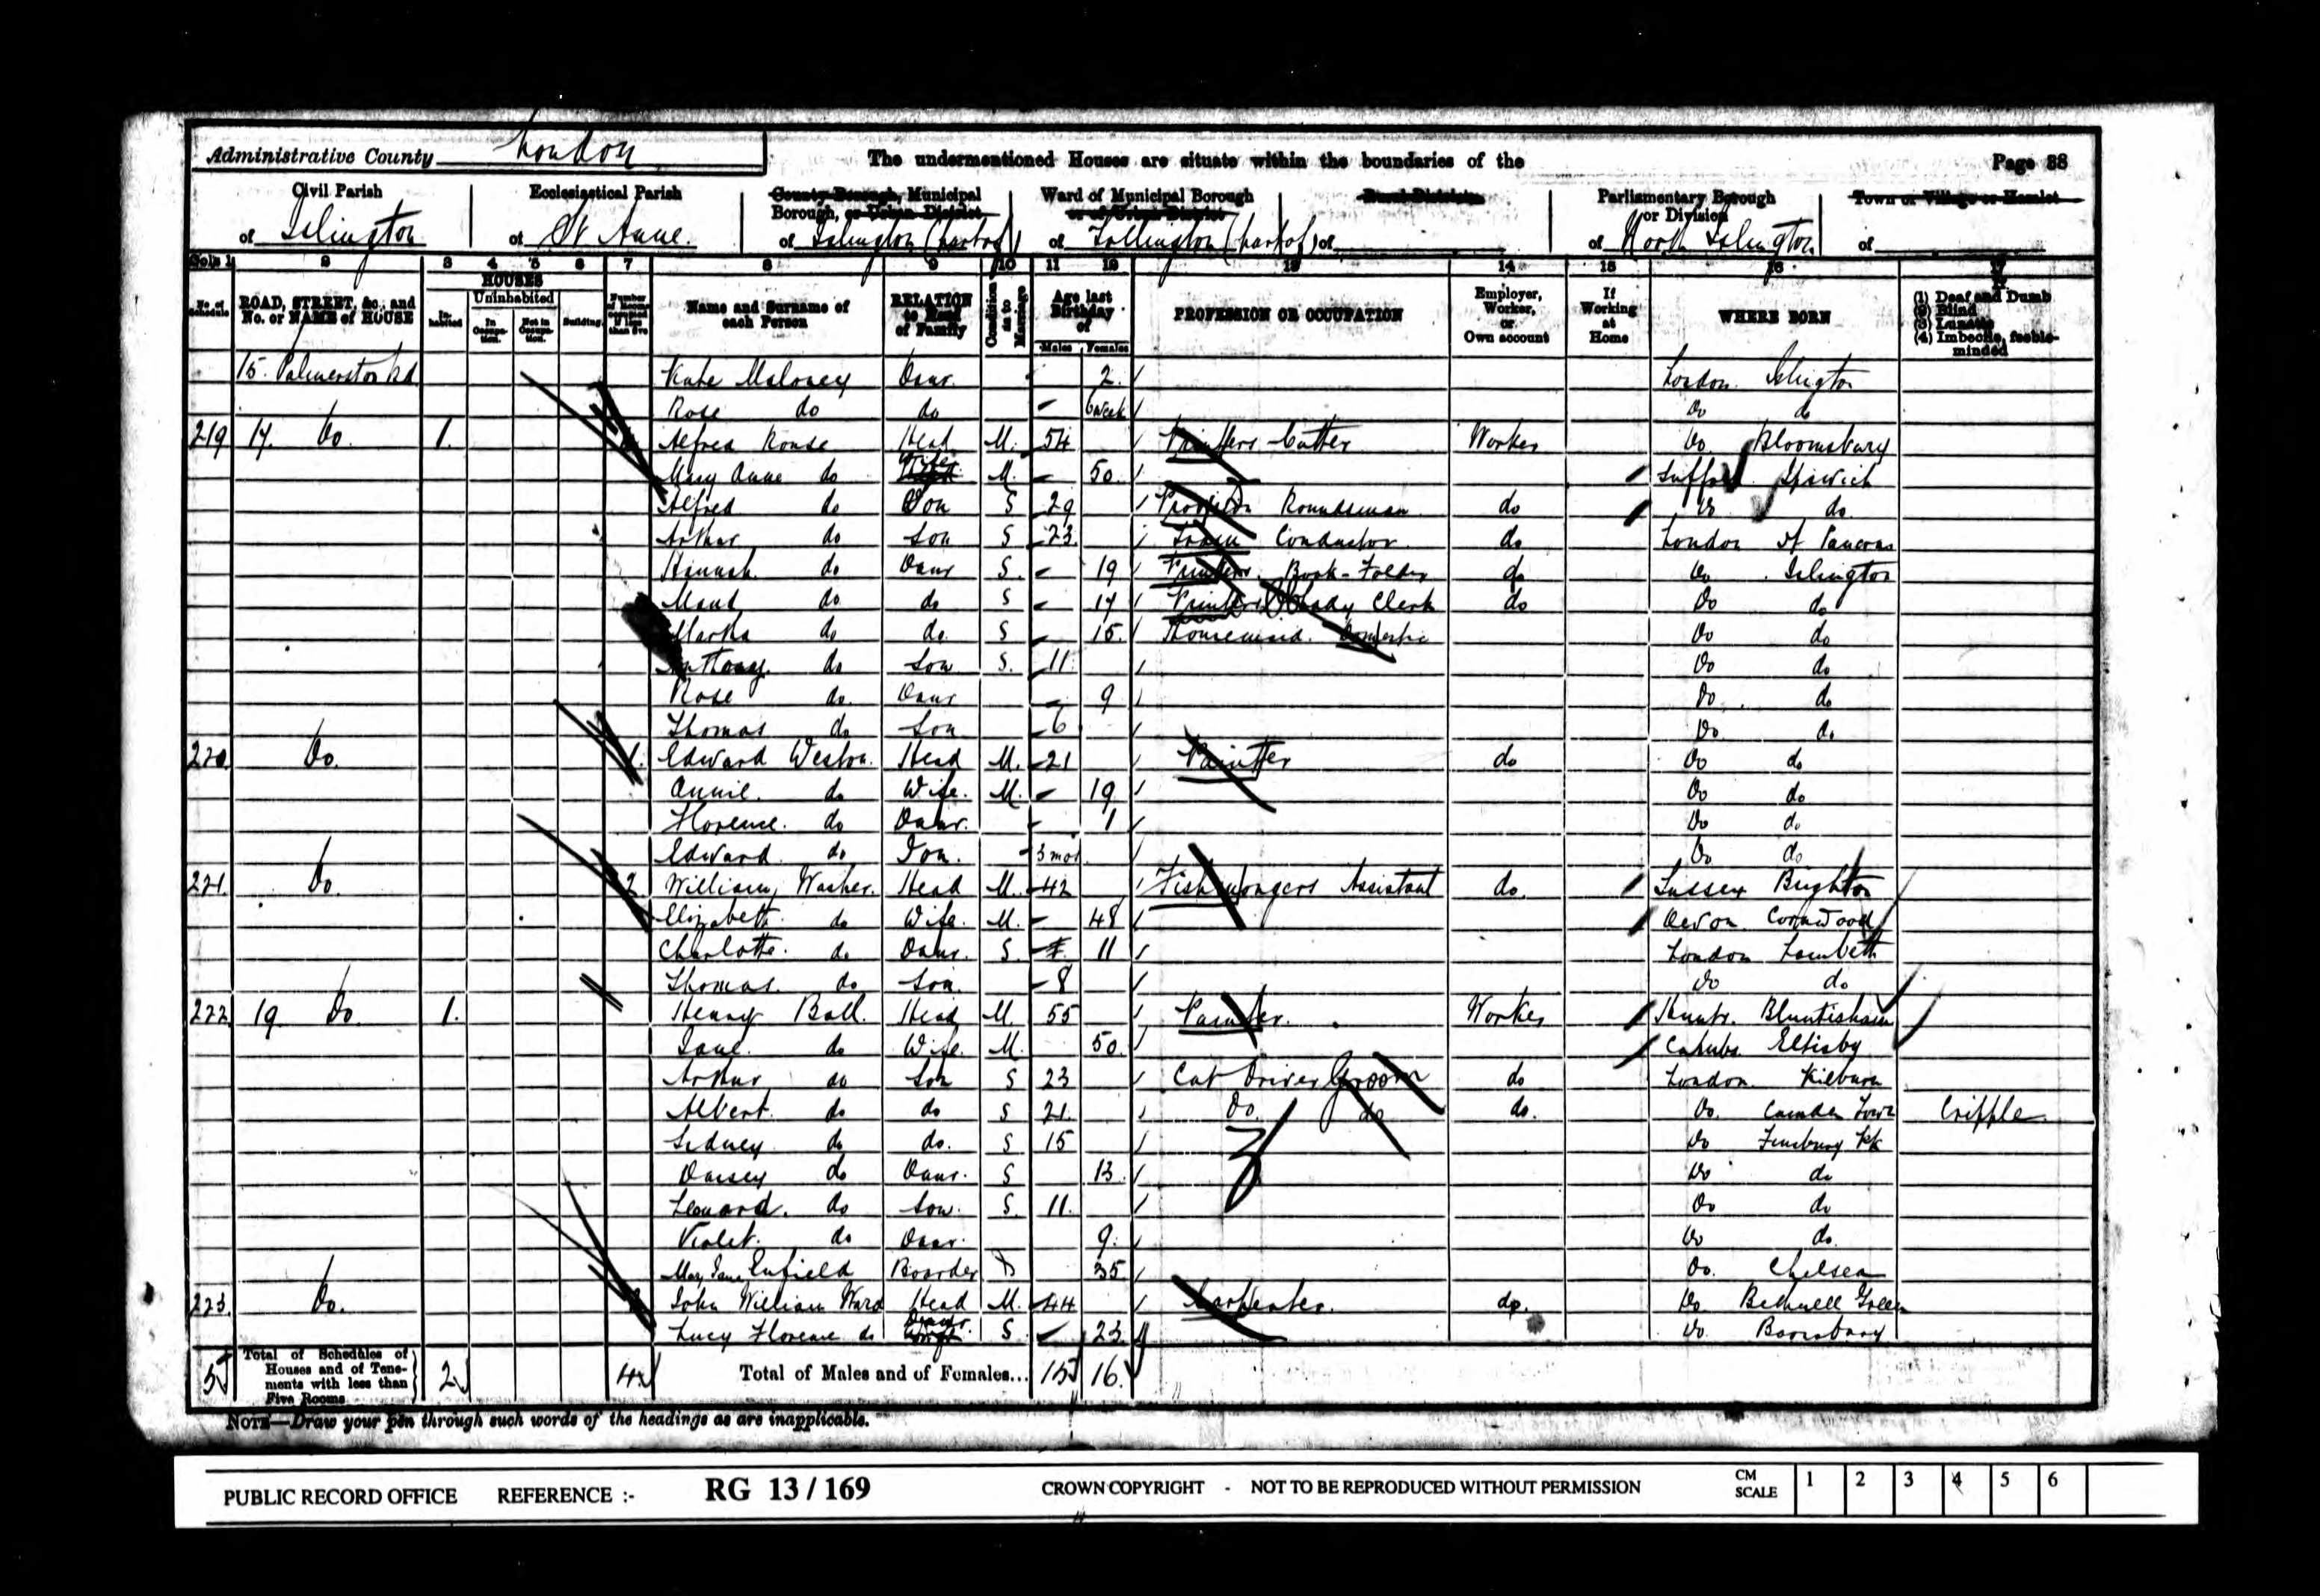 Administrative County London
The undermentioned Houses are situate within the boundaries of the
Page 38
Civil Parish of Islington
Ecclesiastical Parish of St Anne.
County Borough, Municipal Borough, or Urban District of Islington (part of)
Ward of Municipal Borough or of Urban District of Tollington (part of)
Rural District of
Parliamentary Borough or Division of North Islington
Town or Village or Hamlet of
Cols 1 2 3 4 5 6 7 8 9 10 11 12 13 14 15 16 17
No. of Schedule ROAD, STREET, &c., and No. or NAME of HOUSE HOUSES Inhabited Uninhabited In Occupation. Not in Occupation. Building. Number of Rooms occupied if less than five Name and Surname of each Person RELATION to Head of Family Condition as to Marriage Age last Birthday of Males Females PROFESSION OR OCCUPATION Employer, Worker, or Own account If Working at Home WHERE BORN (1) Deaf and Dumb (2) Blind (3) Lunatic (4) Imbecile, feeble-minded
15. Palmerston Rd Kate Maloney Daur. 2. London Islington
Rose do do 6 week Do do
219 17. Do. 1. Alfred Rouse Head M. 54 Printers Cutter Worker Do. Bloomsbury
Mary Anne do Wife M. 50. Suffolk Ipswich
Alfred do Son S 29 Provision Roundsman do Do do.
Arthur do Son S 23. Tram Conductor. do London St Pancras
Hannah. do Daur S. 19 Printers. Book-Folder do Do. Islington
Maud do. do S 17 Printers Lady Clerk do Do do
Martha do do. S 15. Housemaid. Domestic Do do
Anthony. do Son S. 11 Do do
Rose do. Daur 9 Do. do
Thomas do Son 6 Do. do
220. Do. 1. Edward Weston. Head M. 21 Painter do Do do
Annie. do Wife. M. 19 Do do
Florence. do Daur. 1 Do do
Edward do Son. 3 mos Do do
221. Do. 2. William Washer. Head M. 42 Fishmongers Assistant do. Sussex Brighton
Elizabeth. do Wife. M. 48 Devon Cornwood
Charlotte. do Daur. S. 11 London Lambeth
Thomas. do Son. 8 Do do
222. 19. Do. 1. Henry Ball. Head M. 55 Painter. Worker Hunts. Bluntisham
Jane. do Wife. M. 50. Cambs Eltisley
Arthur do Son S 23 Cab Driver Groom do London. Kilburn
Albert. do do S 21. Do. do do. Do. Camden Town Cripple.
Sidney do do. S 15 Do Finsbury Pk
Daisey do Daur. S 13. Do do
Leonard. do Son. S. 11. Do do
Violet. do Daur. 9. Do do.
Mary Jane Enfield Boarder 35 Do. Chelsea
223. Do. John William Ward Head M. 44 Carpenter. do. Do Bethnell Green
Lucy Florence do Daur. S 23. Do. Barnsbury
5 Total of Schedules of Houses and of Tenements with less than Five Rooms 2 4 Total of Males and of Females... 15 16
NOTE—Draw your pen through such words of the headings as are inapplicable.
PUBLIC RECORD OFFICE REFERENCE :- RG 13 / 169 CROWN COPYRIGHT - NOT TO BE REPRODUCED WITHOUT PERMISSION CM SCALE 1 2 3 4 5 6